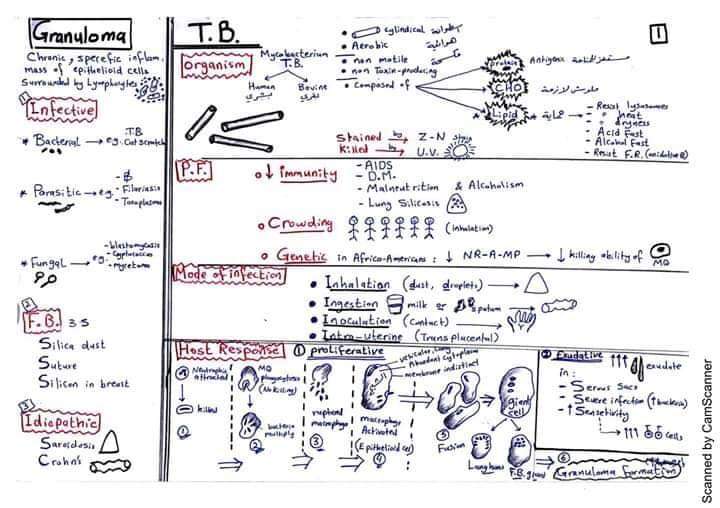 Granuloma
Chronic, specific inflam.
mass of epithelioid cells
surrounded by lymphocytes
1
Infective
* Bacterial → eg. T.B
Cat scratch
* Parasitic → eg.
- Filariasis
- Toxoplasma
* Fungal → eg.
- blastomycosis
- Cryptococcus
- mycetoma
2
F.B. 3 S
Silica dust
Suture
Silicon in breast
3
Idiopathic
Sarcoidosis
Crohn's
T.B.
1
Organism
Mycobacterium
T.B.
Human
بشري
Bovine
بقري
• cylindrical
• Aerobic هوائية
• non motile
• non Toxin-producing
• Composed of
protein Antigenic
CHO
Lipid حماية
- Resist lysosomes
- " heat
- " dryness
- Acid Fast
- Alcohol Fast
- Resist F.R.
Stained by → Z-N stain
Killed by → U.V.
P.F.
o ↓ immunity
- AIDS
- D.M.
- Malnutrition & Alcoholism
- Lung Silicosis
o Crowding (inhalation)
o Genetic in Africo-Americans: ↓ NR-A-MP → ↓ killing ability of MQ
Mode of infection
• Inhalation (dust, droplets) →
• Ingestion milk or sputum →
• Inoculation (Contact) →
• Intro-uterine (Transplacental)
Host Response
1 proliferative
Neutrophils
attracted
killed
1
MQ
phagocytosis
(No killing)
bacteria
multiply
2
ruptured
macrophage
3
vesicular
Abundant cytoplasm
membrane indistinct
macrophage
Activated
(Epithelioid cell)
4
5
Fusion
giant
cell
Langhans
F.B. giant
2 Exudative ↑↑↑ exudate
in:
- Serous Sacs
- Severe infection (↑ bacteria)
- ↑ Sensitivity
→ ↑↑↑ cells
6
Granuloma formation
Scanned by CamScanner